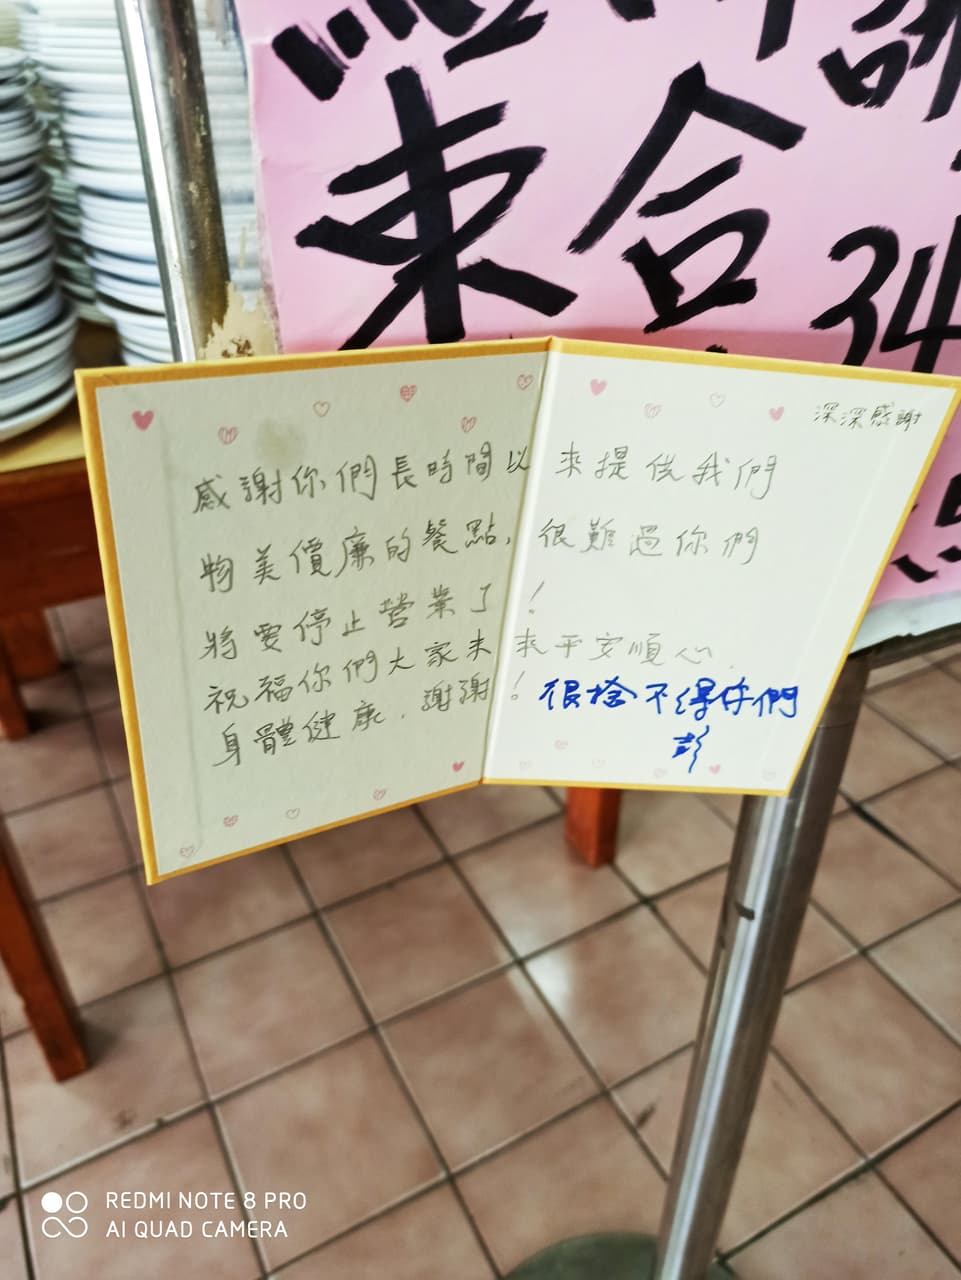 東合
34
深深感謝
感謝你們長時間以來提供我們
物美價廉的餐點,很難過你們
將要停止營業了!
祝福你們大家未來平安順心.
身體健康.謝謝!
很捨不得你們
彭
REDMI NOTE 8 PRO
AI QUAD CAMERA